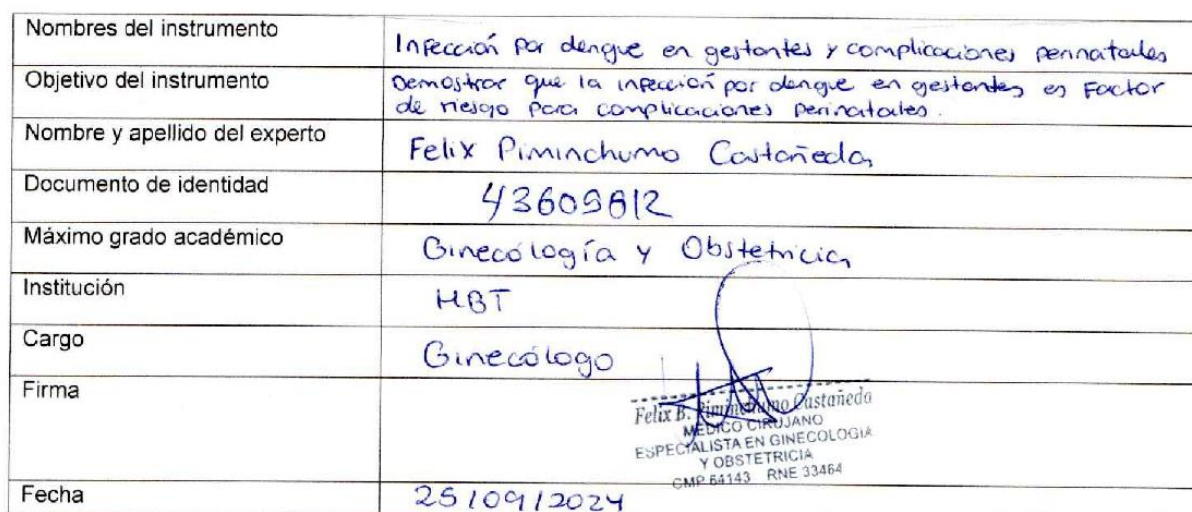 Nombres del instrumento
Infección por dengue en gestantes y complicaciones perinatales
Objetivo del instrumento
Demostrar que la infección por dengue en gestantes es Factor
de riesgo para complicaciones perinatales.
Nombre y apellido del experto
Felix Piminchumo Castañeda
Documento de identidad
43609812
Máximo grado académico
Ginecología y Obstetricia
Institución
HBT
Cargo
Ginecólogo
Firma
Felix B. Piminchumo Castañeda
MÉDICO CIRUJANO
ESPECIALISTA EN GINECOLOGIA
Y OBSTETRICIA
CMP 64143 RNE 33464
Fecha
25/09/2024